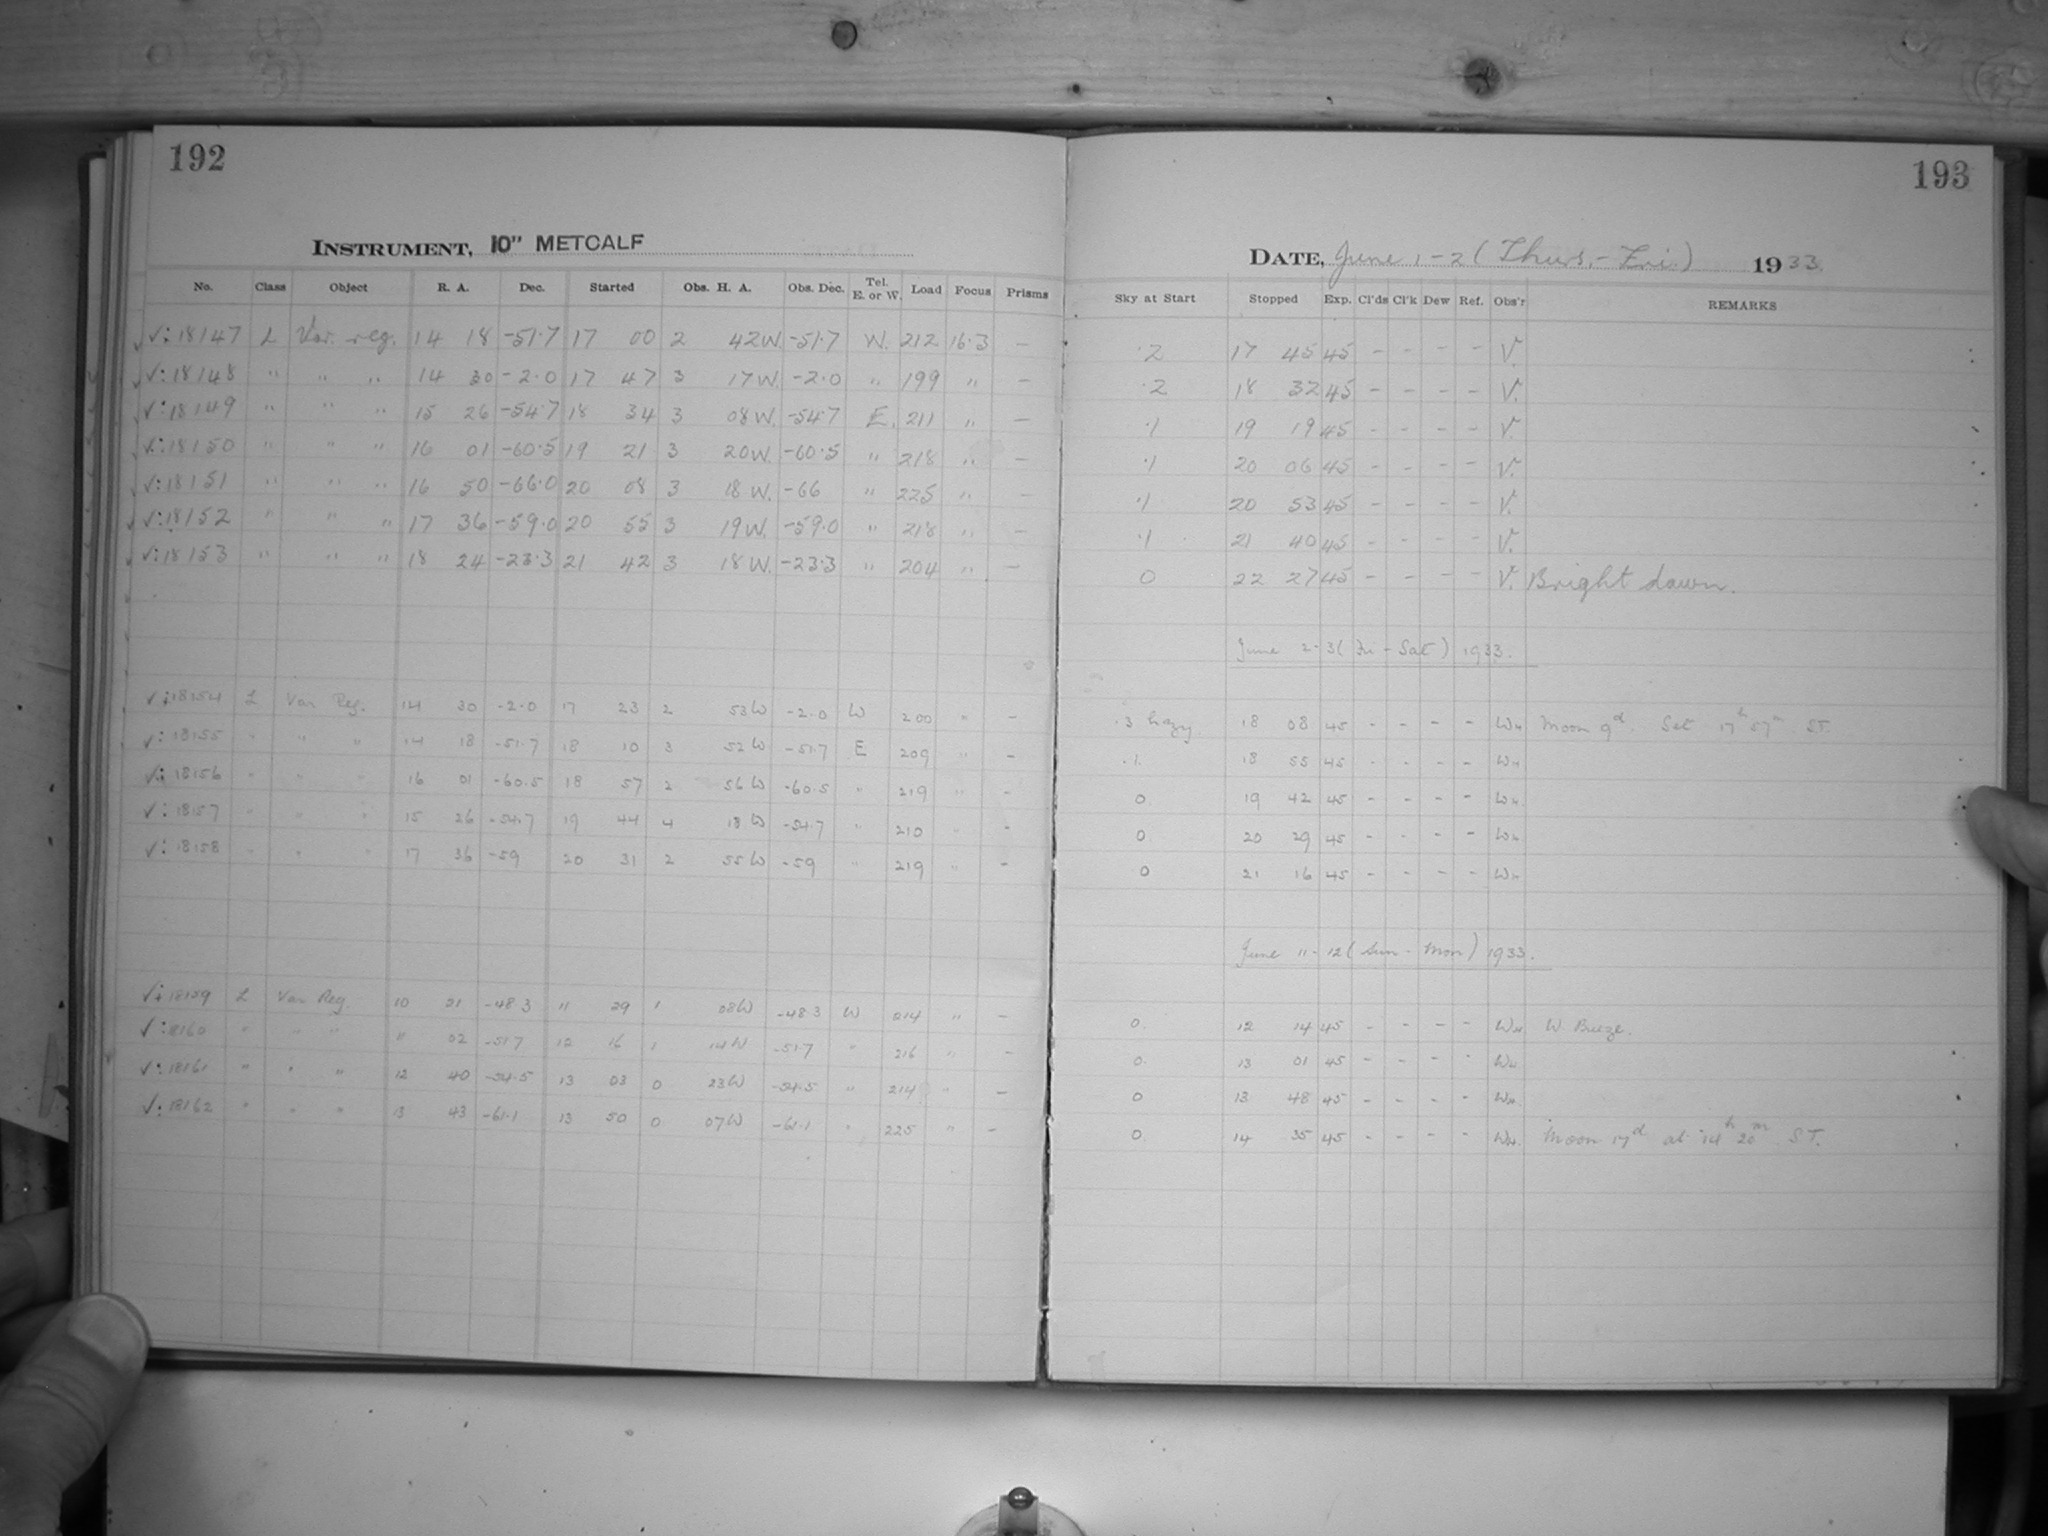 192
INSTRUMENT, 10" METCALF
No. Class Object R. A. Dec. Started Obs. H. A. Obs. Dec. Tel. E. or W. Load Focus Prisms
√: 18147 L Var. reg. 14 18 -51.7 17 00 2 42W. -51.7 W. 212 16.3 -
√: 18148 " " " 14 30 -2.0 17 47 3 17W. -2.0 " 199 " -
√: 18149 " " " 15 26 -54.7 18 34 3 08W. -54.7 E. 211 " -
√: 18150 " " " 16 01 -60.5 19 21 3 20W. -60.5 " 218 " -
√: 18151 " " " 16 50 -66.0 20 08 3 18W. -66 " 225 " -
√: 18152 " " " 17 36 -59.0 20 55 3 19W. -59.0 " 218 " -
√: 18153 " " " 18 24 -23.3 21 42 3 18W. -23.3 " 204 " -
√: 18154 L Var Reg. 14 30 -2.0 17 23 2 53W -2.0 W 200 " -
√: 18155 " " " 14 18 -51.7 18 10 3 52W -51.7 E 209 " -
√: 18156 " " " 16 01 -60.5 18 57 2 56W -60.5 " 219 " -
√: 18157 " " " 15 26 -54.7 19 44 4 18W -54.7 " 210 " -
√: 18158 " " " 17 36 -59 20 31 2 55W -59 " 219 " -
√: 18159 L Var Reg. 10 21 -48.3 11 29 1 08W -48.3 W 214 " -
√: 18160 " " " 11 02 -51.7 12 16 1 14W -51.7 " 216 " -
√: 18161 " " " 12 40 -54.5 13 03 0 23W -54.5 " 214 " -
√: 18162 " " " 13 43 -61.1 13 50 0 07W -61.1 " 225 " -
193
DATE, June 1-2 (Thurs.-Fri.) 1933.
Sky at Start Stopped Exp. Cl'ds Cl'k Dew Ref. Obs'r REMARKS
.2 17 45 45 - - - - V.
.2 18 32 45 - - - - V.
.1 19 19 45 - - - - V.
.1 20 06 45 - - - - V.
.1 20 53 45 - - - - V.
.1 21 40 45 - - - - V.
0 22 27 45 - - - - V. Bright dawn.
June 2-3 (Fri-Sat) 1933.
.3 hazy 18 08 45 - - - - WH Moon 9d. Set 17h 57m ST.
.1. 18 55 45 - - - - WH
0 19 42 45 - - - - WH
0 20 29 45 - - - - WH
0 21 16 45 - - - - WH
June 11-12 (Sun-Mon) 1933.
0. 12 14 45 - - - - WH W Breeze.
0. 13 01 45 - - - - WH
0 13 48 45 - - - - WH
0. 14 35 45 - - - - WH. Moon 17d at 14h 20m ST.